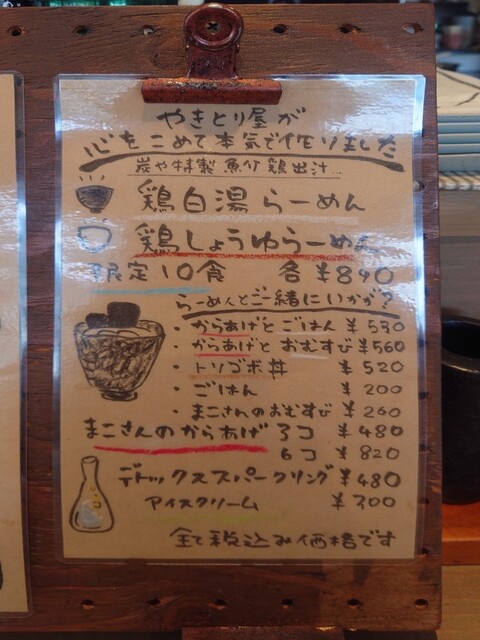 やきとり屋が
心をこめて本気で作りました
炭や特製 魚介 鶏出汁...
鶏白湯らーめん
鶏しょうゆらーめん
限定10食 各¥890
らーめんとご一緒にいかが?
・からあげとごはん ¥530
・からあげとおむすび ¥560
・トリゴボ丼 ¥520
・ごはん ¥200
・まこさんのおむすび ¥260
まこさんのからあげ 3コ ¥480
6コ ¥820
デトックススパークリング ¥480
アイスクリーム ¥300
全て税込み価格です